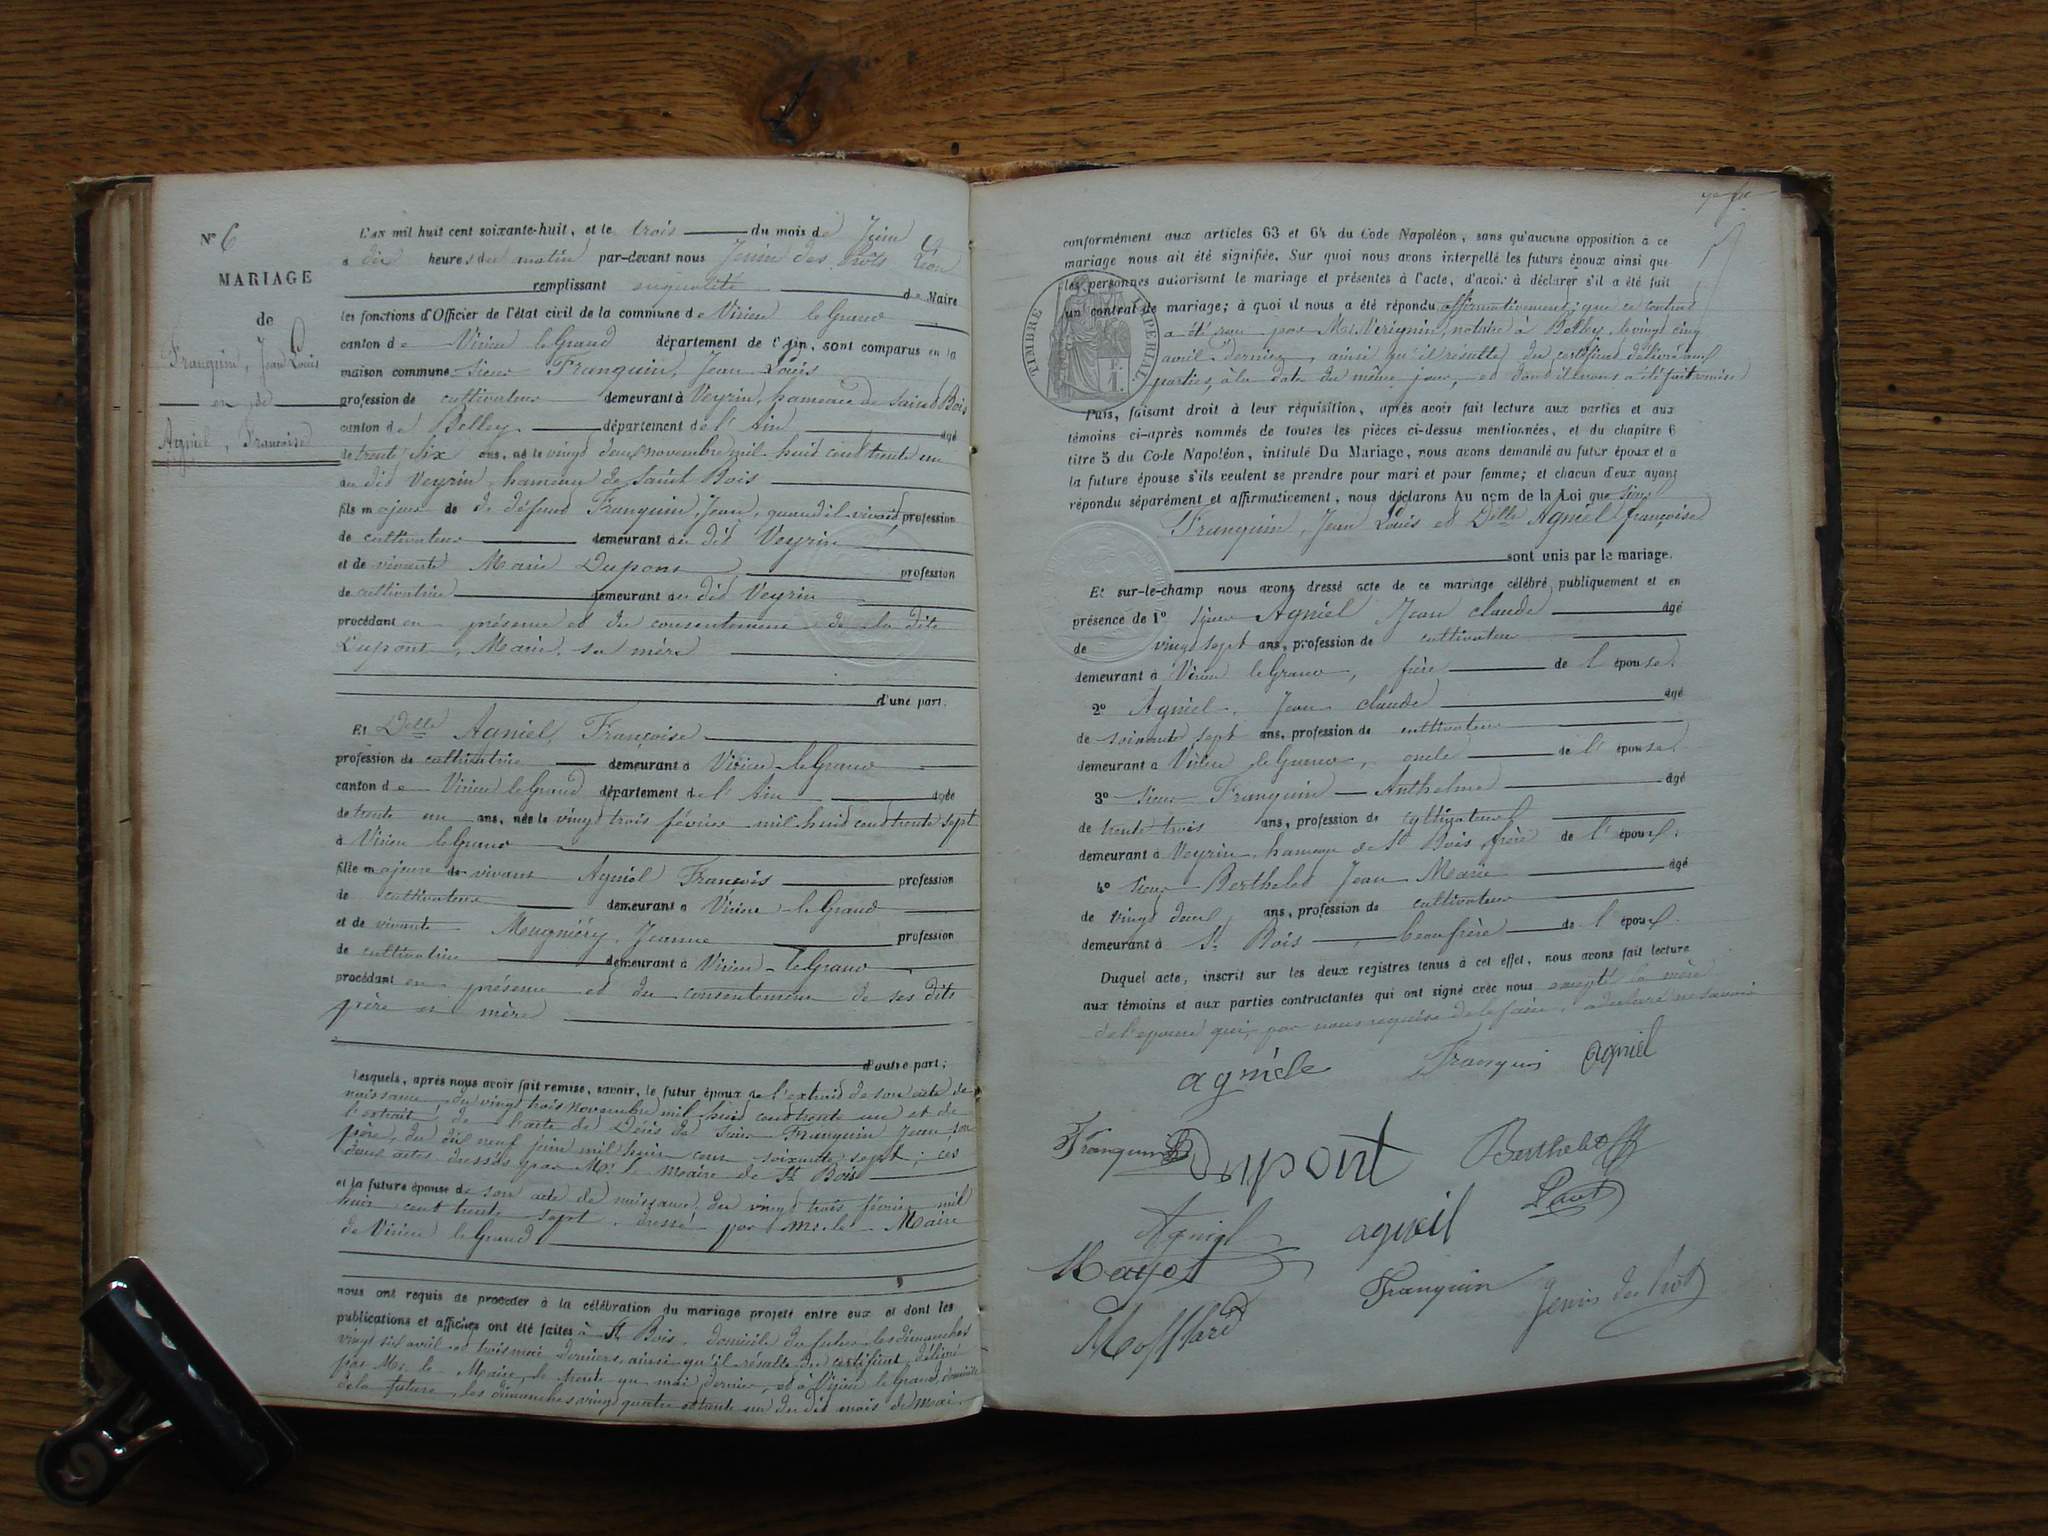 N° 6
MARIAGE
de
Franquin, Jean Louis
et de
Agniel, Françoise
L'an mil huit cent soixante-huit, et le trois du mois de Juin
a dix heures du matin par-devant nous Jenin des Prots Léon
remplissant en qualité de Maire
les fonctions d'Officier de l'état civil de la commune de Virieu le Grand
canton de Virieu le Grand département de l'Ain, sont comparus en la
maison commune Sieur Franquin, Jean Louis
profession de cultivateur demeurant à Veyrin, hameau de Saint Bois
canton de Belley département de l'Ain âgé
de trente six ans, né le vingt deux novembre mil huit cent trente un
au dit Veyrin, hameau de Saint Bois
fils majeur de défunt Franquin, Jean, quand il vivait, profession
de cultivateur demeurant au dit Veyrin
et de vivante Marie Dupont profession
de cultivatrice demeurant au dit Veyrin
procédant en présence et du consentement de la dite
Dupont, Marie, sa mère
d'une part.
Et Delle Agniel, Françoise
profession de cultivatrice demeurant à Virieu-le-Grand
canton de Virieu le Grand département de l'Ain agée
de trente un ans, née le vingt trois février mil huit cent trente sept
à Virieu le Grand
fille majeure de vivant Agniel François profession
de cultivateur demeurant à Virieu-le-Grand
et de vivante Meugniéry, Jeanne profession
de cultivatrice demeurant à Virieu-le-Grand
procédant en présence et du consentement de ses dits
père et mère
d'autre part;
Lesquels, après nous avoir fait remise, savoir, le futur époux de l'extrait de son acte de
naissance du vingt trois novembre mil huit cent trente un et de
l'extrait de l'acte de Décès de Sieur Franquin Jean son
père, du dix neuf juin mil huit cent soixante sept; ces
deux actes dressés par Mr. le Maire de St Bois
et la future épouse de son acte de naissance, du vingt trois février mil
huit cent trente sept, dressé par Mr. le Maire
de Virieu le Grand
nous ont requis de procéder à la célébration du mariage projeté entre eux et dont les
publications et affiches ont été faites à St Bois, domicile du futur les dimanches
vingt six avril et trois mai derniers, ainsi qu'il résulte du certificat délivré
par Mr. le Maire, le trente un mai dernier, et à Virieu le Grand, domicile
de la future, les dimanches vingt quatre et trente un du dit mois de mai.
conformément aux articles 63 et 64 du Code Napoléon, sans qu'aucune opposition à ce
mariage nous ait été signifiée. Sur quoi nous avons interpellé les futurs époux ainsi que
les personnes autorisant le mariage et présentes à l'acte, d'avoir à déclarer s'il a été fait
un contrat de mariage; à quoi il nous a été répondu affirmativement; que ce contrat
a été reçu par Me notaire à Belley, le vingt cinq
avril dernier, ainsi qu'il résulte du certificat délivré aux
parties, à la date du même jour, et dont il nous a été fait remise
TIMBRE IMPERIAL
Puis, faisant droit à leur réquisition, après avoir fait lecture aux parties et aux
témoins ci-après nommés de toutes les pièces ci-dessus mentionnées, et du chapitre 6
titre 5 du Code Napoléon, intitulé Du Mariage, nous avons demandé au futur époux et à
la future épouse s'ils veulent se prendre pour mari et pour femme; et chacun d'eux ayant
répondu séparément et affirmativement, nous déclarons Au nom de la Loi que Sieur
Franquin, Jean Louis et Delle Agniel françoise
sont unis par le mariage.
Et sur-le-champ nous avons dressé acte de ce mariage célébré publiquement et en
présence de 1° Sieur Agniel Jean claude âgé
de vingt sept ans, profession de cultivateur
demeurant à Virieu le Grand, frère de l'épouse.
2° Agniel, Jean claude âgé
de soixante sept ans, profession de cultivateur
demeurant a Virieu le Grand, oncle de l'épouse.
3° Sieur Franquin Anthelme âgé
de trente trois ans, profession de cultivateur
demeurant à Veyrin, hameau de St Bois, frère de l'époux.
4° Sieur Berthelet Jean Marie âgé
de vingt deux ans, profession de cultivateur
demeurant à St Bois, beau frère de l'époux.
Duquel acte, inscrit sur les deux registres tenus à cet effet, nous avons fait lecture
aux témoins et aux parties contractantes qui ont signé avec nous excepté la mère
de l'épouse qui, par nous requise de le faire, a déclaré ne savoir
agniele Franquin agniel
Franquin Dupont Berthelet
Agniel agneil
Mayot Franquin Jenin des Prots